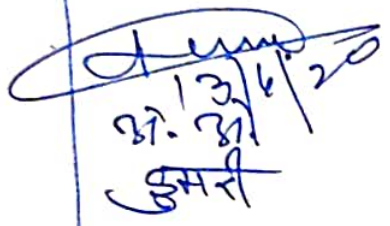 13/4/20
अं. अो.
डुमरी